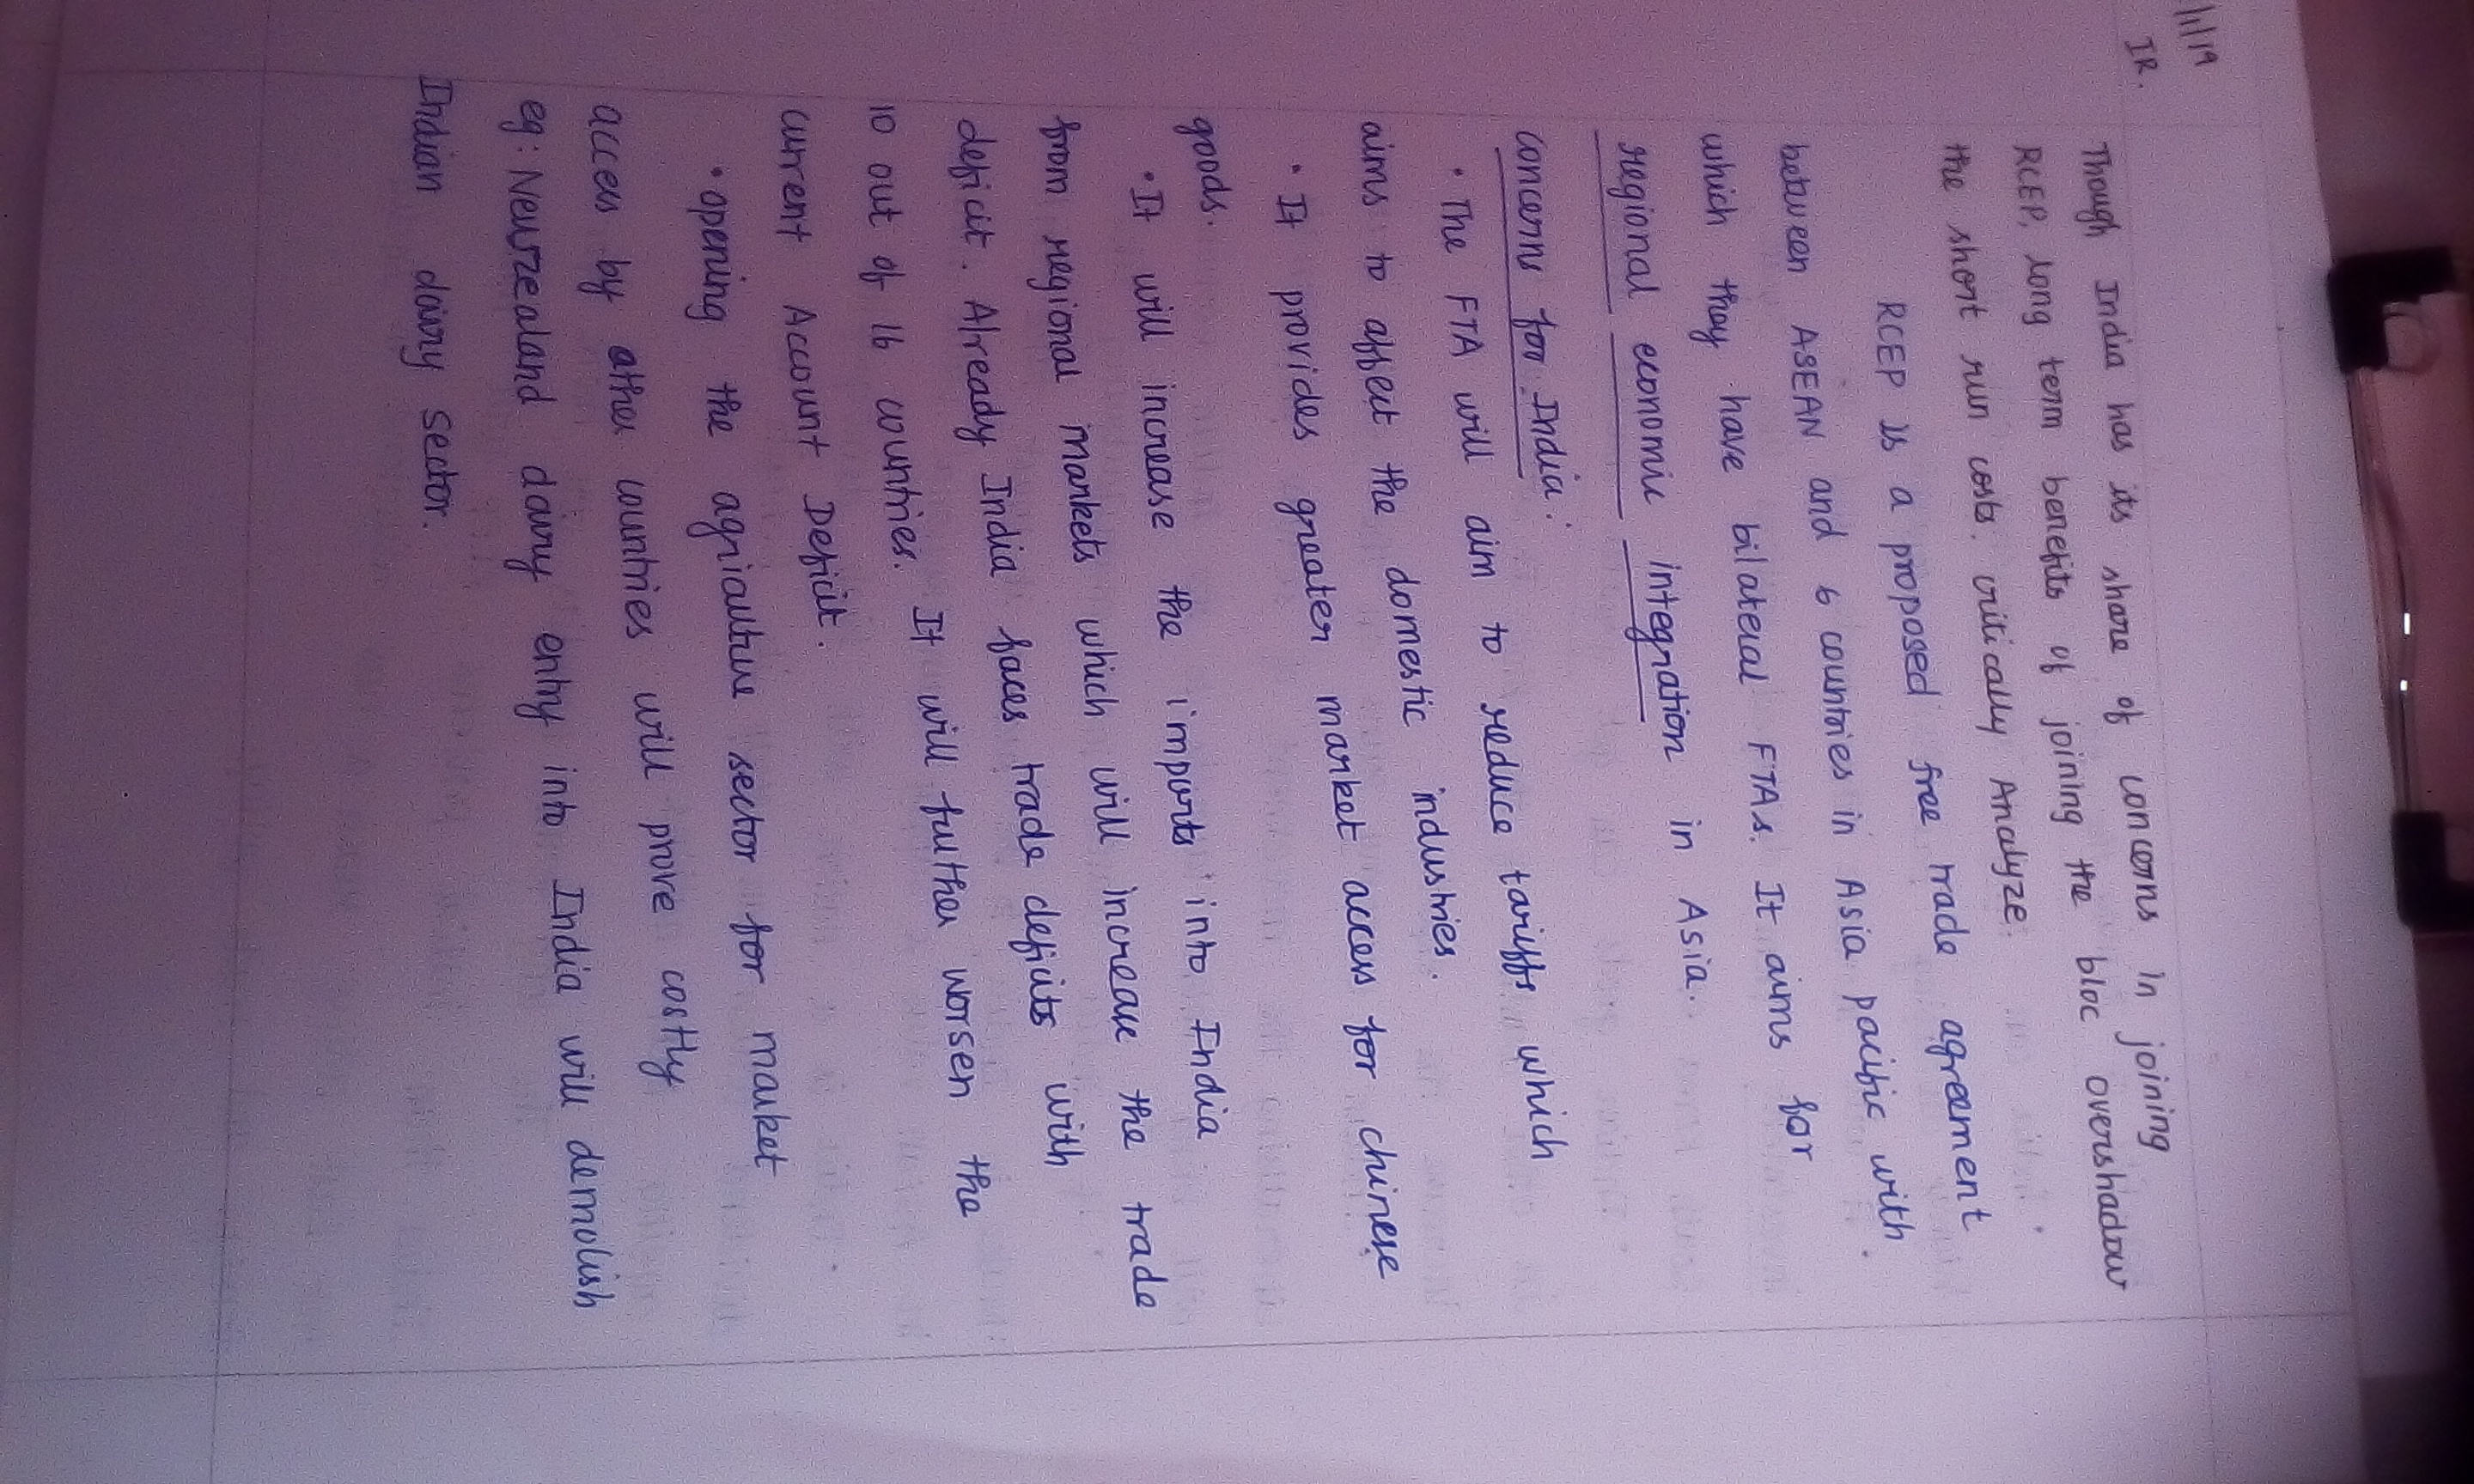 1/1/19
IR.
Though India has its share of concerns in joining
RCEP, long term benefits of joining the bloc overshadow
the short run costs. critically Analyze.
RCEP is a proposed free trade agreement
between ASEAN and 6 countries in Asia pacific with
which they have bilateral FTAs. It aims for
regional economic integration in Asia.
concerns for India:
• The FTA will aim to reduce tariffs which
aims to affect the domestic industries.
• It provides greater market access for chinese
goods.
• It will increase the imports into India
from regional markets which will increase the trade
deficit. Already India faces trade deficits with
10 out of 16 countries. It will further worsen the
current Account Deficit.
• opening the agriculture sector for market
access by other countries will prove costly
eg: Newzealand dairy entry into India will demolish
Indian dairy sector.